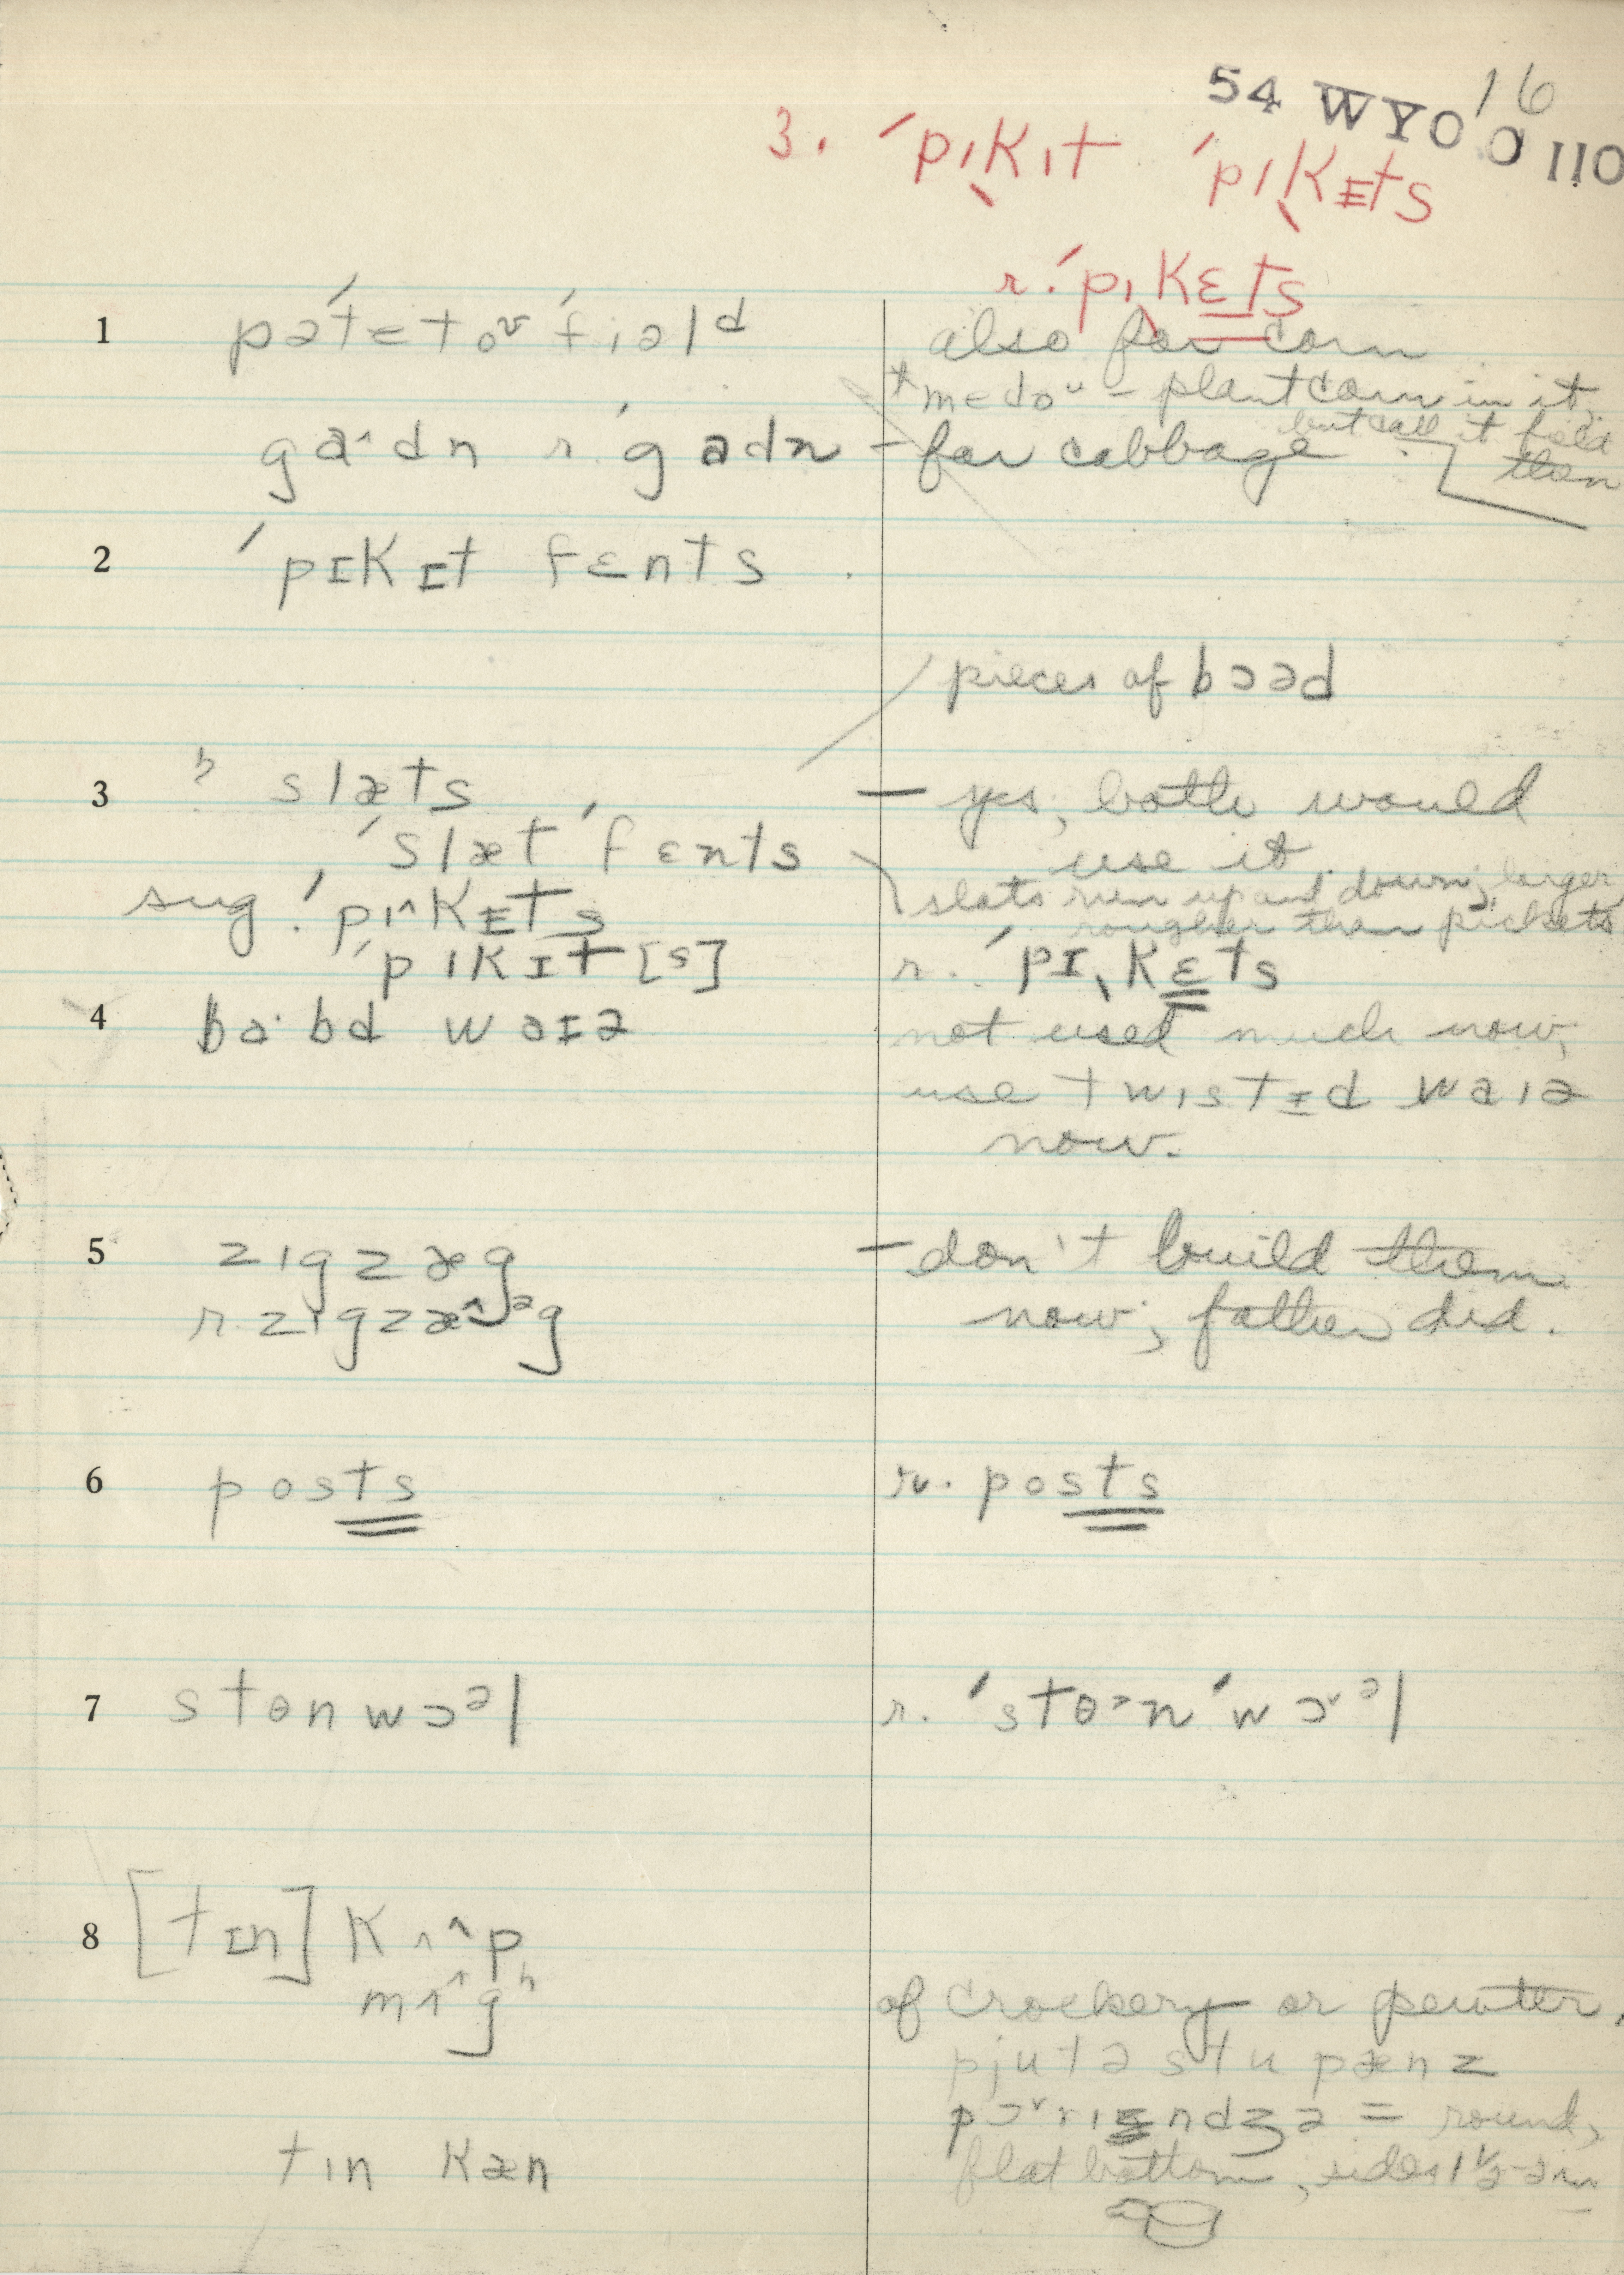 54 WYO O 110
16
3. ˈpɪkɪt ˈpɪkɛts
r. ˈpɪkɛts
1 pəˈtetoᵛ ˈfiəlᵈ also for corn
+ mɛdoᵘ – plant corn in it,
but call it field
then
ga^dn r. ˈgadn – for cabbage
2 ˈpɪkɪt fɛnts
pieces of bɔəd
3 slæts – yes, both would
ˈslæt ˈfɛnts use it
slats run up and down; larger,
rougher than pickets
sug. ˈpɪ^kɪts
ˈpɪkɪt[s] r. ˈpɪkɛts
4 ba·bd waɪə not used much now;
use twɪstɪd waɪə
now.
5 zɪgzæg – don't build them
r. zɪgzæ^ᵊg now; father did.
6 posts r. posts
7 stɵnwɔᵊl r. ˈstɵ˃nˈwɔᵛᵊl
8 [tɪn] kʌ^p
mʌ^gʰ of crockery or pewter,
pjutə stupænz
pɔᵛrɪndʒə = round,
tɪn kæn flat bottom, sides 1½-2 in